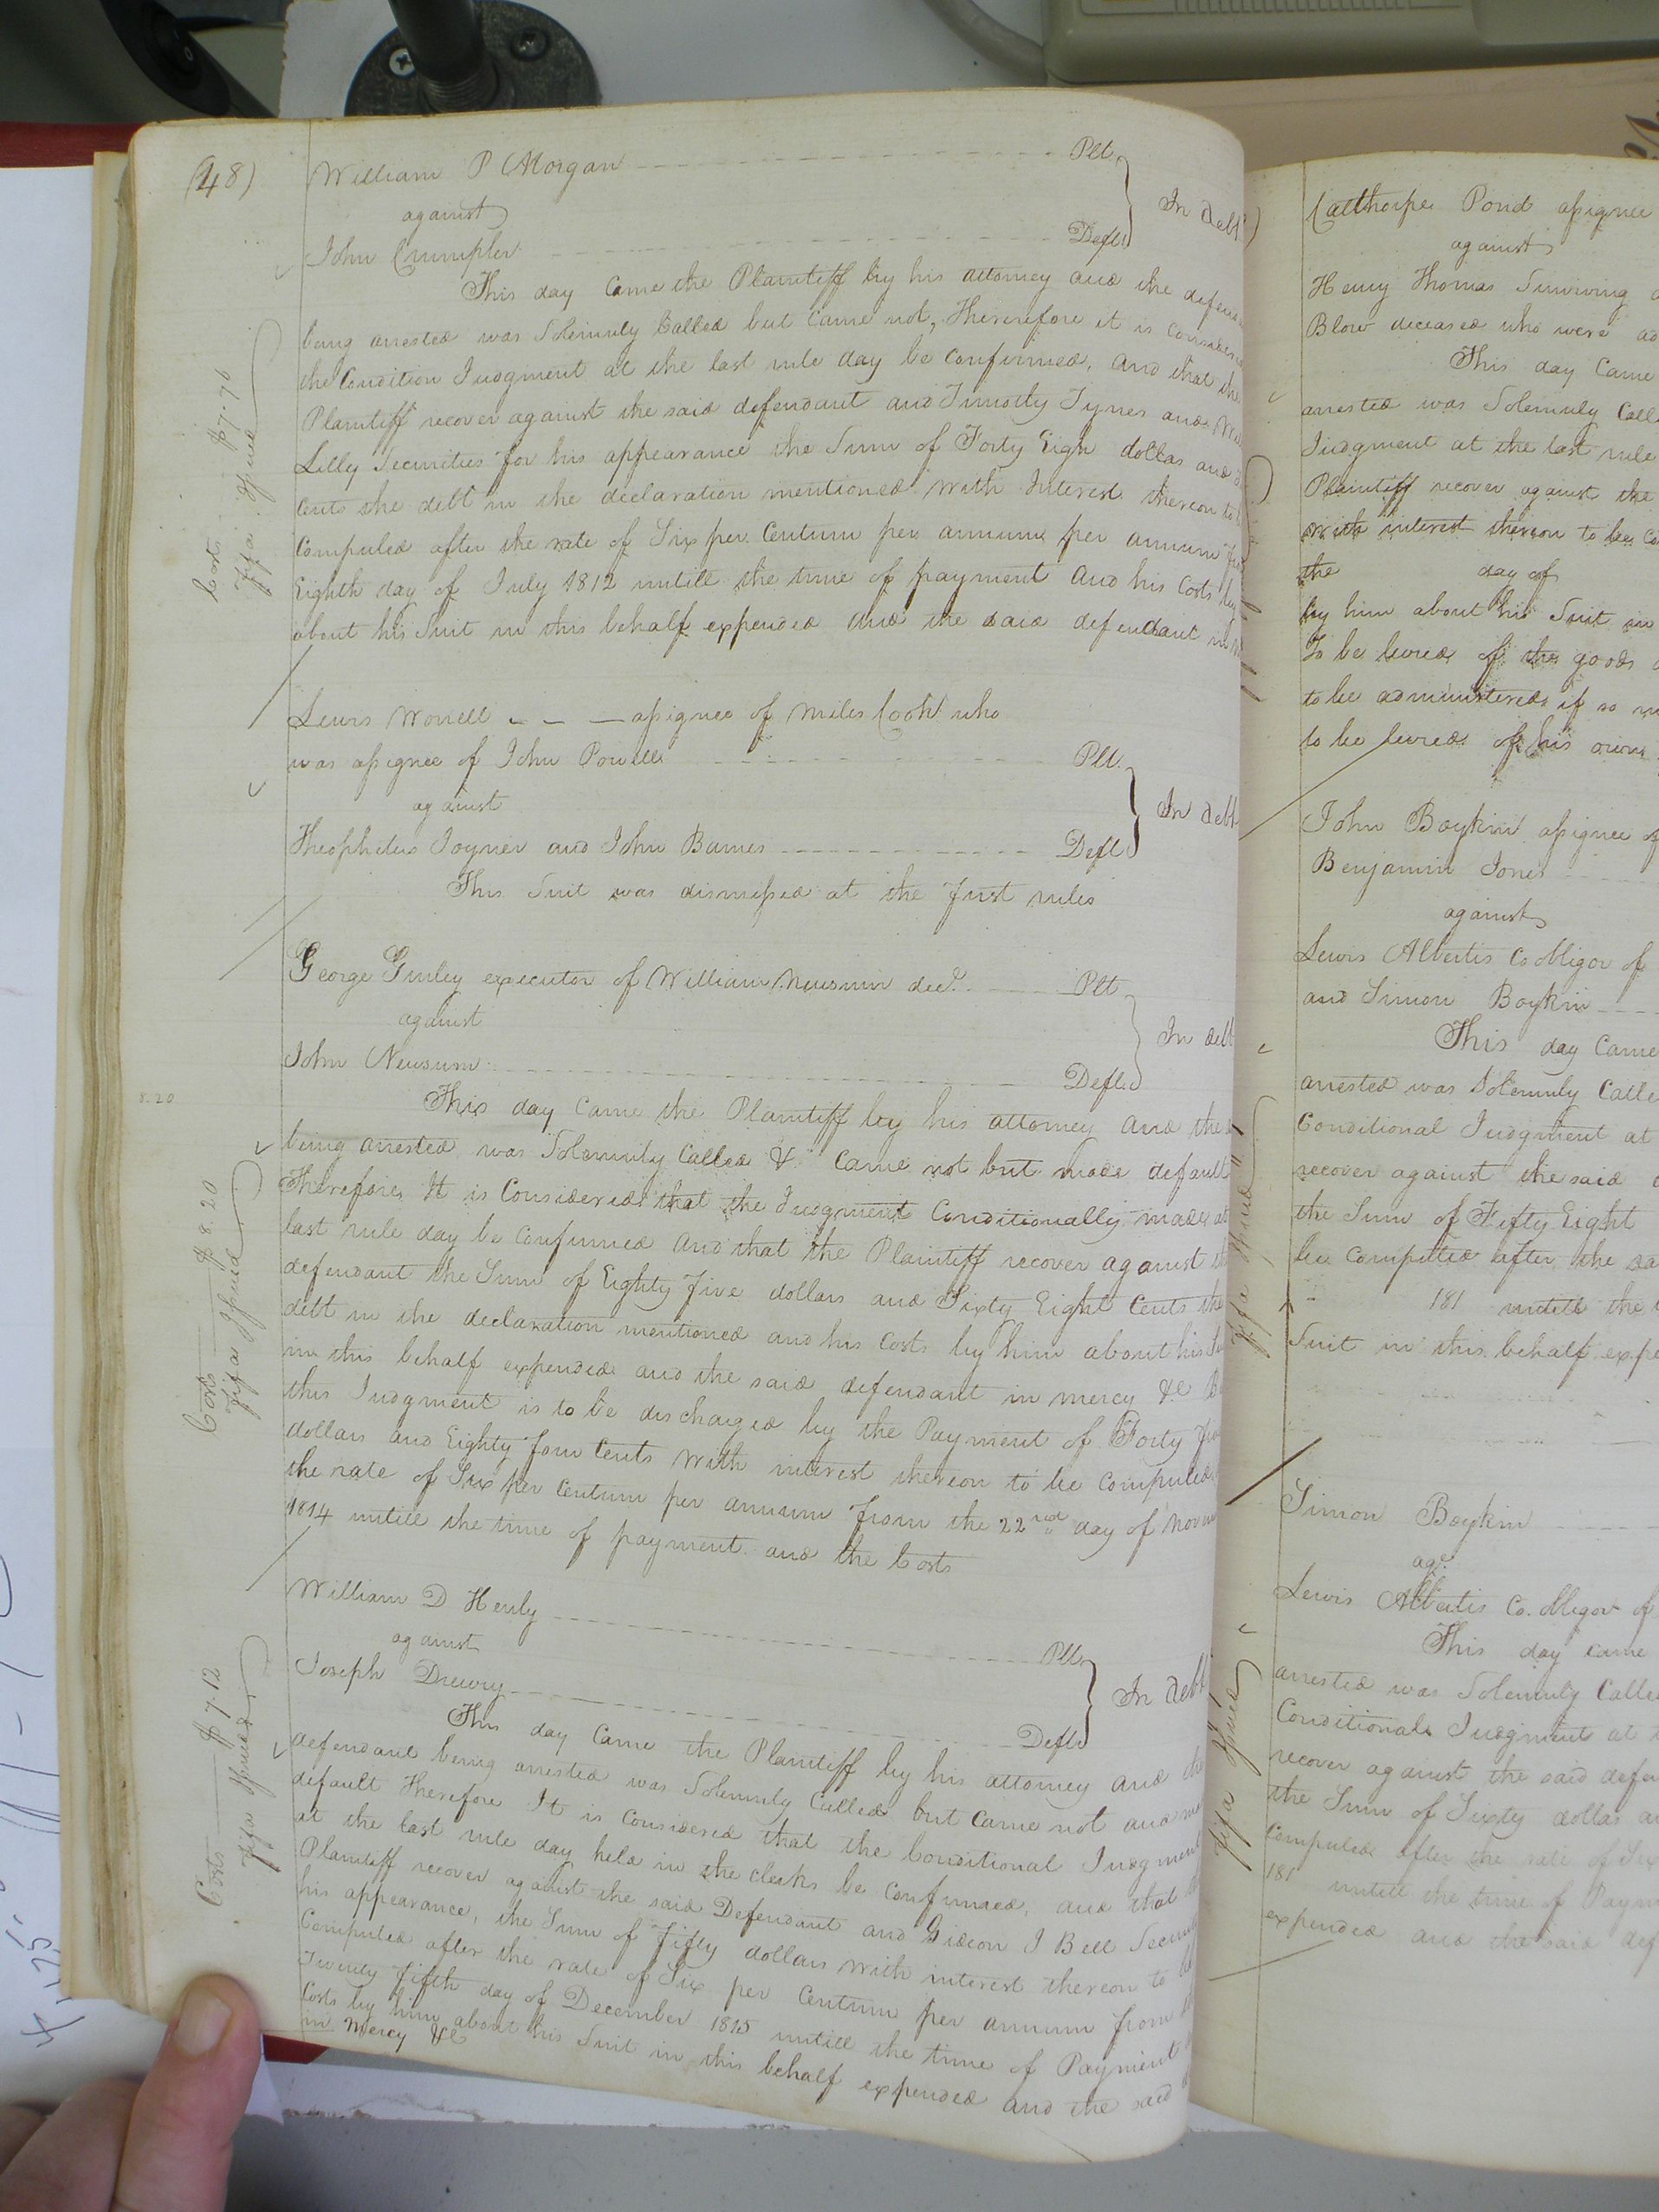 (48)
William P Morgan Plt.
against
In debt
John Crumpler Deft.
This day Came the Plaintiff by his attorney and the
being arrested was Solemnly Called but Came not, Therefore it is
the Condition Judgment at the last rule day be Confirmed, and that the
Plaintiff recover against the said defendant and Timothy Tynes and
Lilly Securities for his appearance the Sum of Forty Eigh dollas and
Cents the debt in the declaration mentioned with Interest thereon to
Computed after the rate of Six per Centum per annum per annum
Eighth day of July 1812 untill the time of payment and his Costs by
about his Suit in this behalf expended and the said defendant in
Costs $7.76
fifa Issued
Lewis Worrell assignee of Miles Cook who
was assignee of John Powell Plt.
against
In debt
Theophelus Joyner and John Barnes Deft
This Suit was dismissed at the first rules
George Gurley executor of William Newsum decd. Plt
against
In debt
John Newsum Deft.
8.20
This day Came the Plaintiff by his attorney and the
being arrested was Solemnly Called & Came not but made default
Therefore It is Considered that the Judgment Conditionally made at
last rule day be Confirmed and that the Plaintiff recover against
defendant the Sum of Eighty five dollars and Sixty Eight Cents the
debt in the declaration mentioned and his Costs by him about his
in this behalf expended and the said defendant in mercy &c
this Judgment is to be discharged by the Payment of Forty
dollars and Eighty four Cents with interest thereon to be Computed
the rate of Six per Centum per annum from the 22nd day of
1814 untill the time of payment and the Costs
Costs $8.20
fifa Issued
William D Henly Plt.
against
In debt
Joseph Drewry Deft
This day Came the Plaintiff by his attorney and the
defendant being arrested was Solemnly Called but Came not and
default Therefore It is Considered that the Conditional Judgment
at the last rule day held in the clerks be Confirmed, and that
Plaintiff recover against the said Defendant and Gideon J Bell
his appearance, the Sum of Fifty dollars with interest thereon to be
Computed after the rate of Six per Centum per annum from
Twenty fifth day of December 1815 untill the time of Payment
Costs by him about his Suit in this behalf expended and the said
in mercy &c
Costs $7.12
fifa Issued
Calthorpe Pond assignee
against
Henry Thomas Surviving
Blow deceased who were
This day Came
arrested was Solemnly
Judgment at the last rule
Plaintiff recover against the
with interest thereon to be
the day of
by him about his Suit in
To be levied of the goods
to be administered if so
to be levied of his own
John Boykin assignee of
Benjamin Jones
against
Lewis Albertis Co Obligor of
and Simon Boykin
This day Came
arrested was Solemnly
Conditional Judgment at
recover against the said
the Sum of Fifty Eight
be Computed after the
181 untill the
Suit in this behalf
fifa Issued
Simon Boykin
agt.
Lewis Albertis Co. Obligor of
This day came
arrested was Solemnly
Conditional Judgment at
recover against the said
the Sum of Sixty dollas
Computed after the rate of
181 untill the time of
expended and the said
fifa Issued